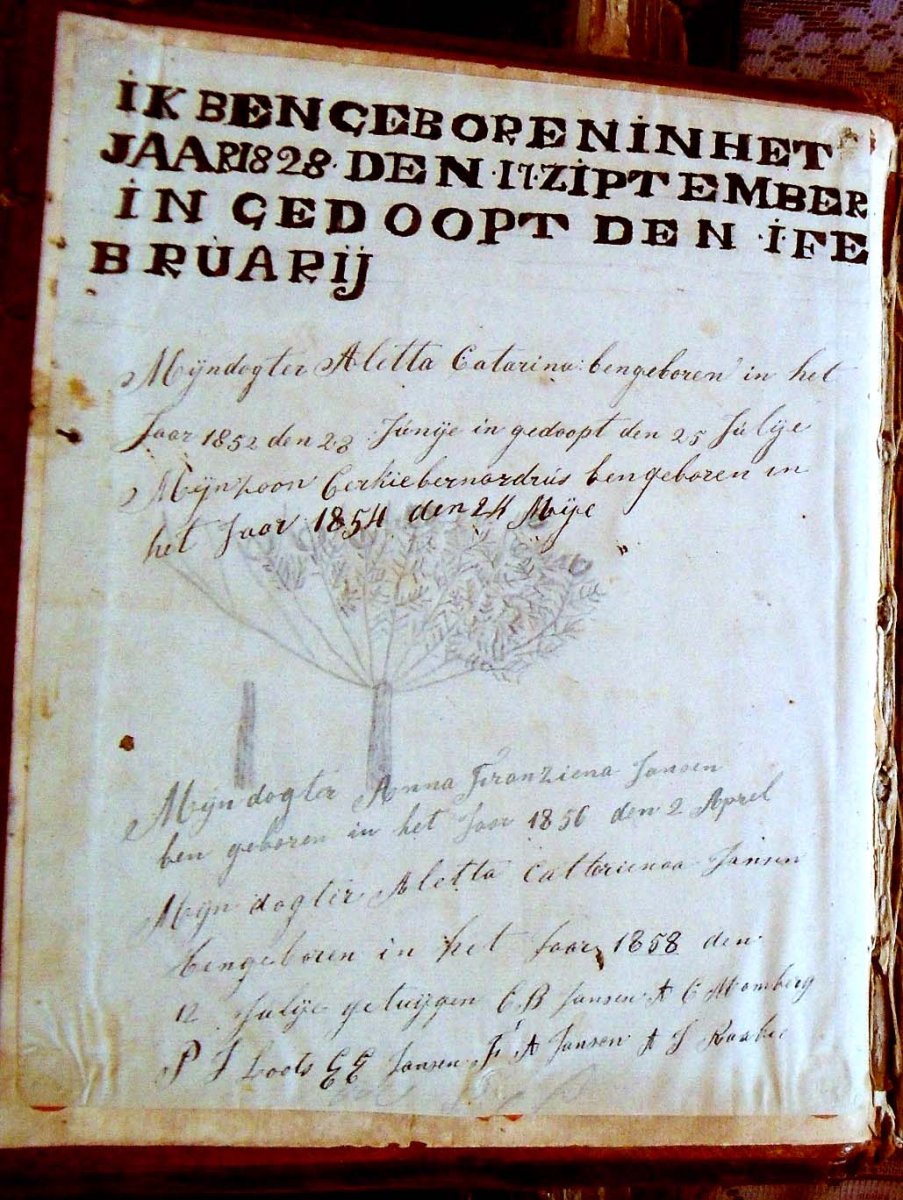 IK BEN GEBOREN IN HET
JAAR 1828 DEN 17 ZIPTEMBER
IN GEDOOPT DEN 1 FE
BRUARIJ
Mijn dogter Aletta Catarina bengeboren in het
Jaar 1852 den 23 Junije in gedoopt den 25 Julije
Mijn zoon Cerkiebernardrus bengeboren in
het Jaar 1854 den 24 Mije
Mijn dogter Anna Franziena Jansen
ben geboren in het Jaar 1856 den 2 Aprel
Mijn dogter Aletta Cattorienaa Jansen
bengeboren in het Jaar 1858 den
12 Julije getuijgen C B Jansen A C Momberg
P J Loots E E Jansen F A Jansen A J